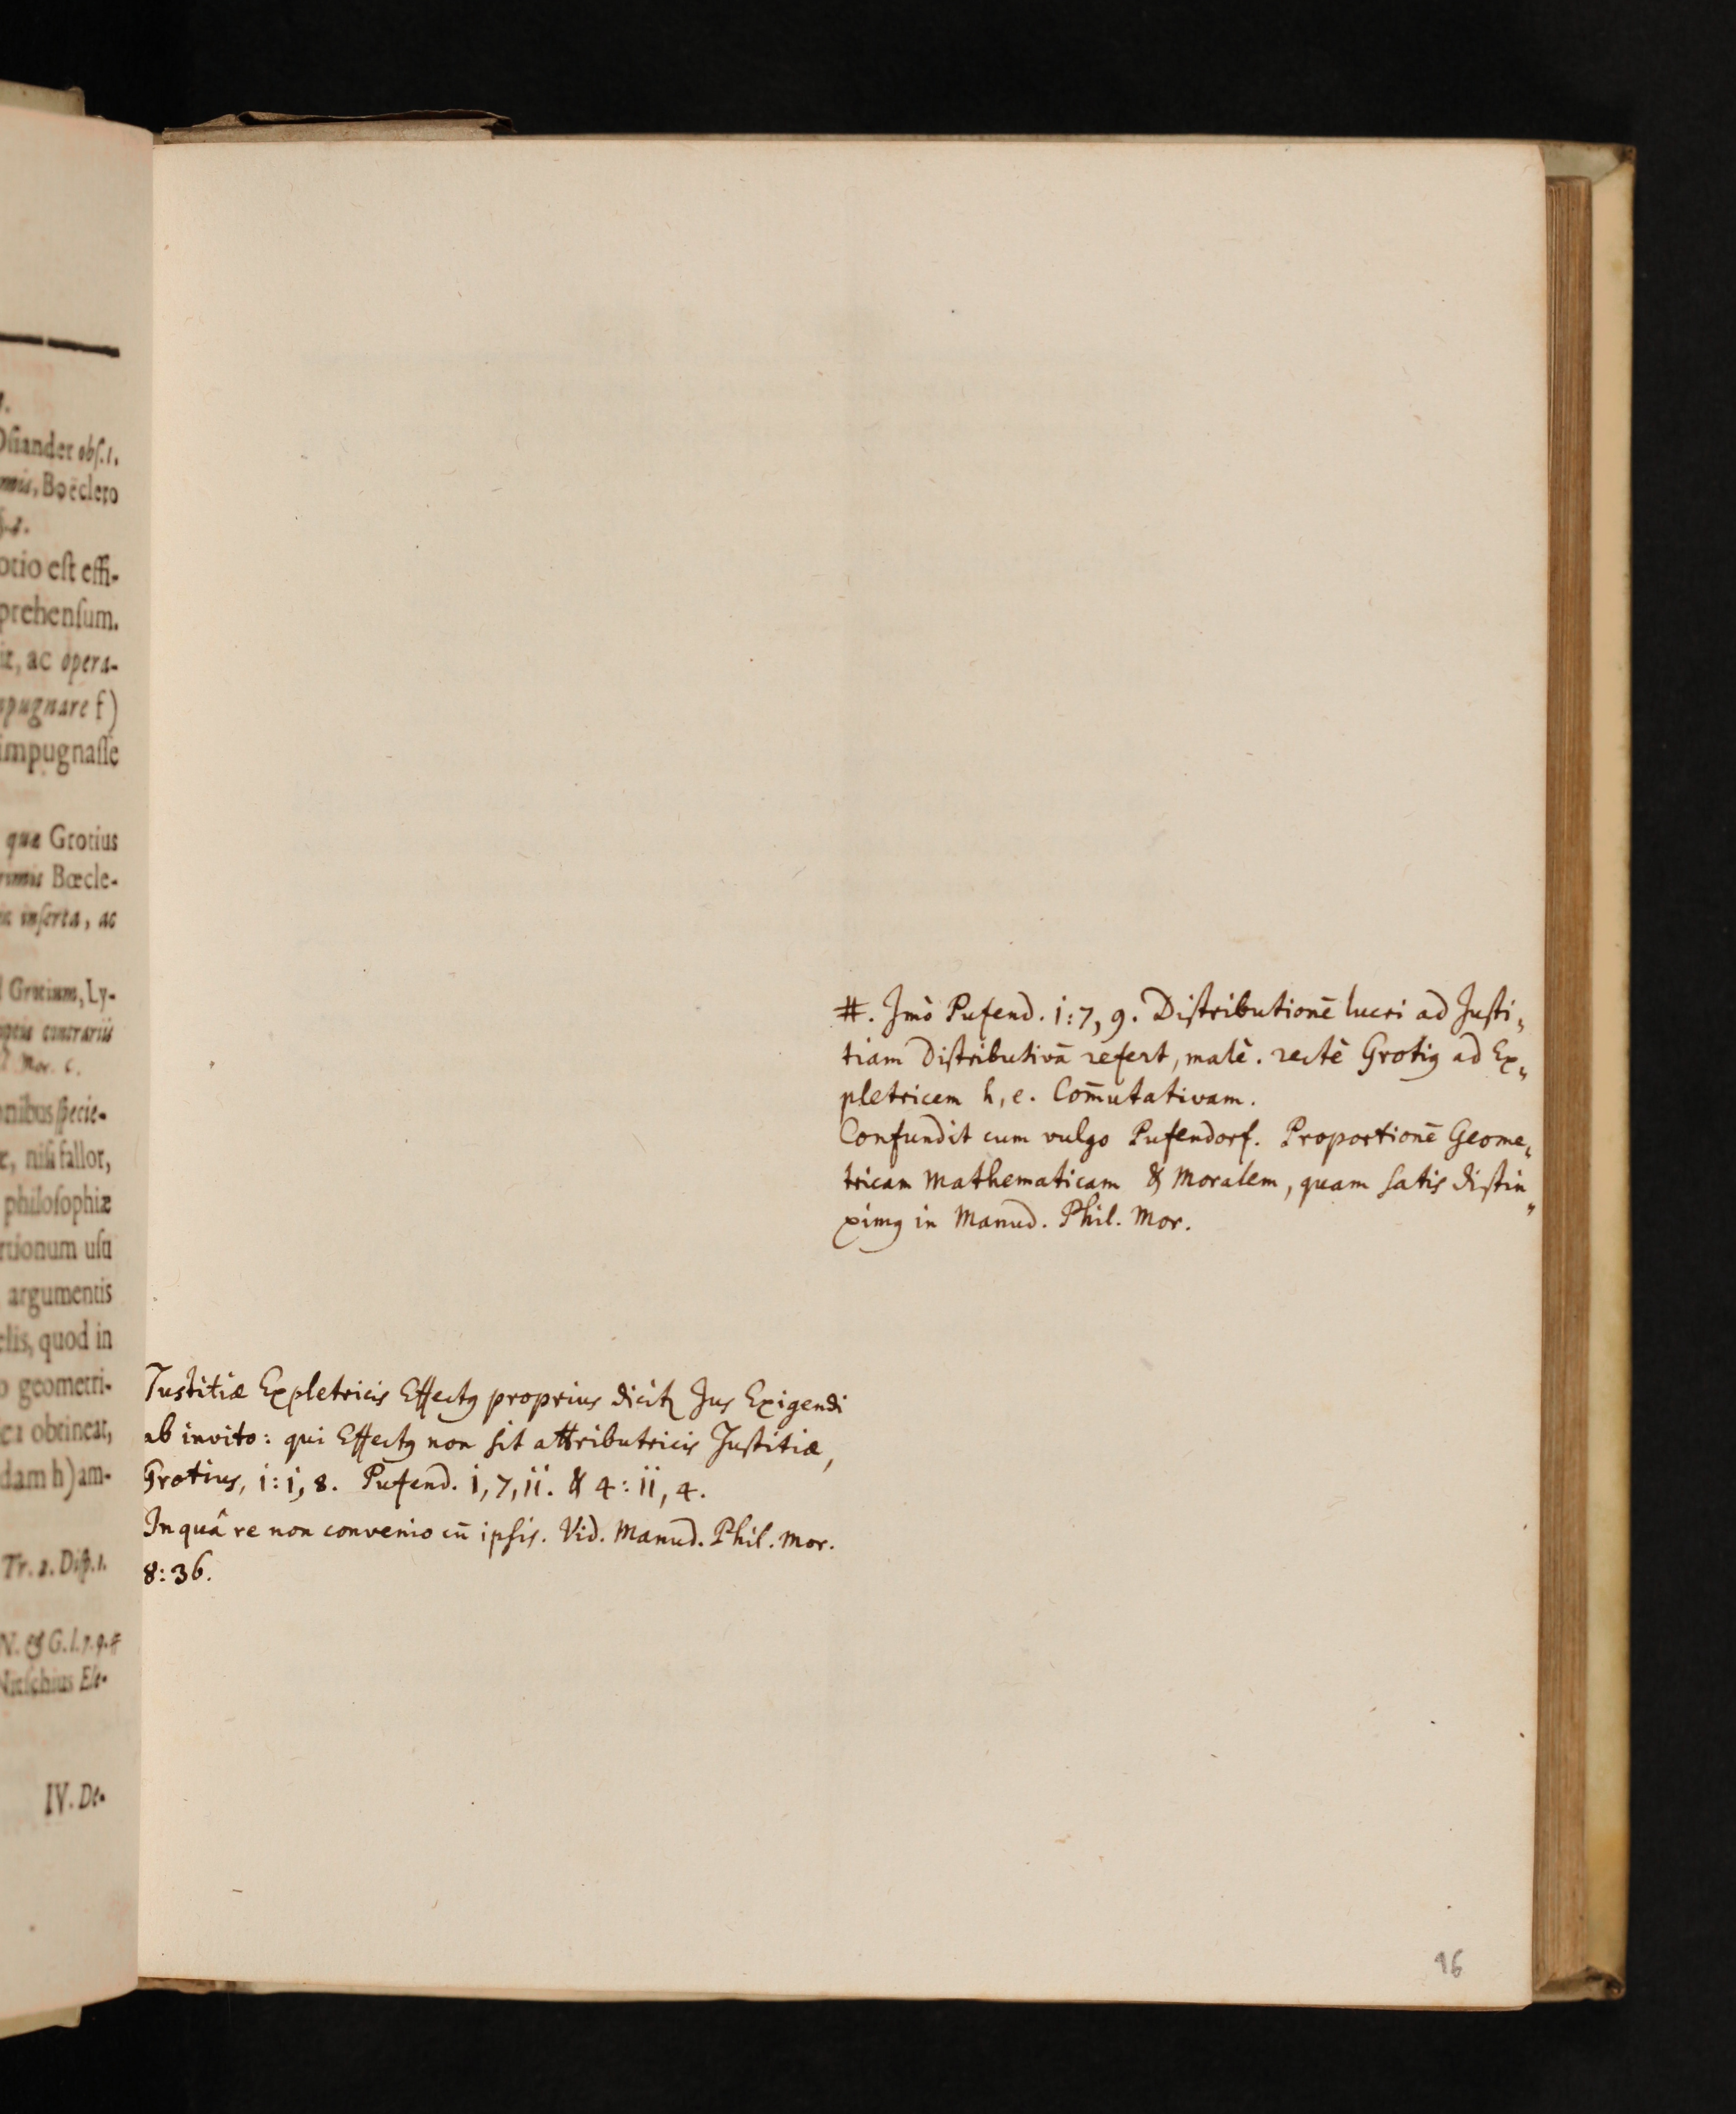 Osiander obs. 1.
Boëclero
otio est effi-
prehensum.
ac opera-
pugnare f)
impugnasse
quæ Grotius
Bœcle-
inserta, ac
Grotium, Ly-
contrariis
Mor. c.
specie-
nisi fallor,
philosophiæ
rtionum usu
argumentis
quod in
geometri-
obtineat,
dam h) am-
Tr. 2. Disp. 1.
N. & G. l. 7. 9. #
Nitschius Ele-
IV. De-
#. Imò Pufend. 1:7, 9. Distributionē lucri ad Justi„
tiam Distributivā refert, malè. rectè Grotiꝰ ad Ex„
pletricem h, e. Com̄utativam.
Confundit cum vulgo Pufendorf. Proportionē Geome„
tricam Mathematicam & Moralem, quam satis distin„
ximꝰ in Manud. Phil. Mor.
Justitiæ Expletricis Effectꝰ proprius dicitꝛ Jus Exigendi
ab invito: qui Effectꝰ non sit attributricis Justitiæ,
Grotius, 1:1, 8. Pufend. 1, 7, 11. & 4: 11, 4.
In quâ re non convenio cū ipsis. Vid. Manud. Phil. Mor.
8:36.
96